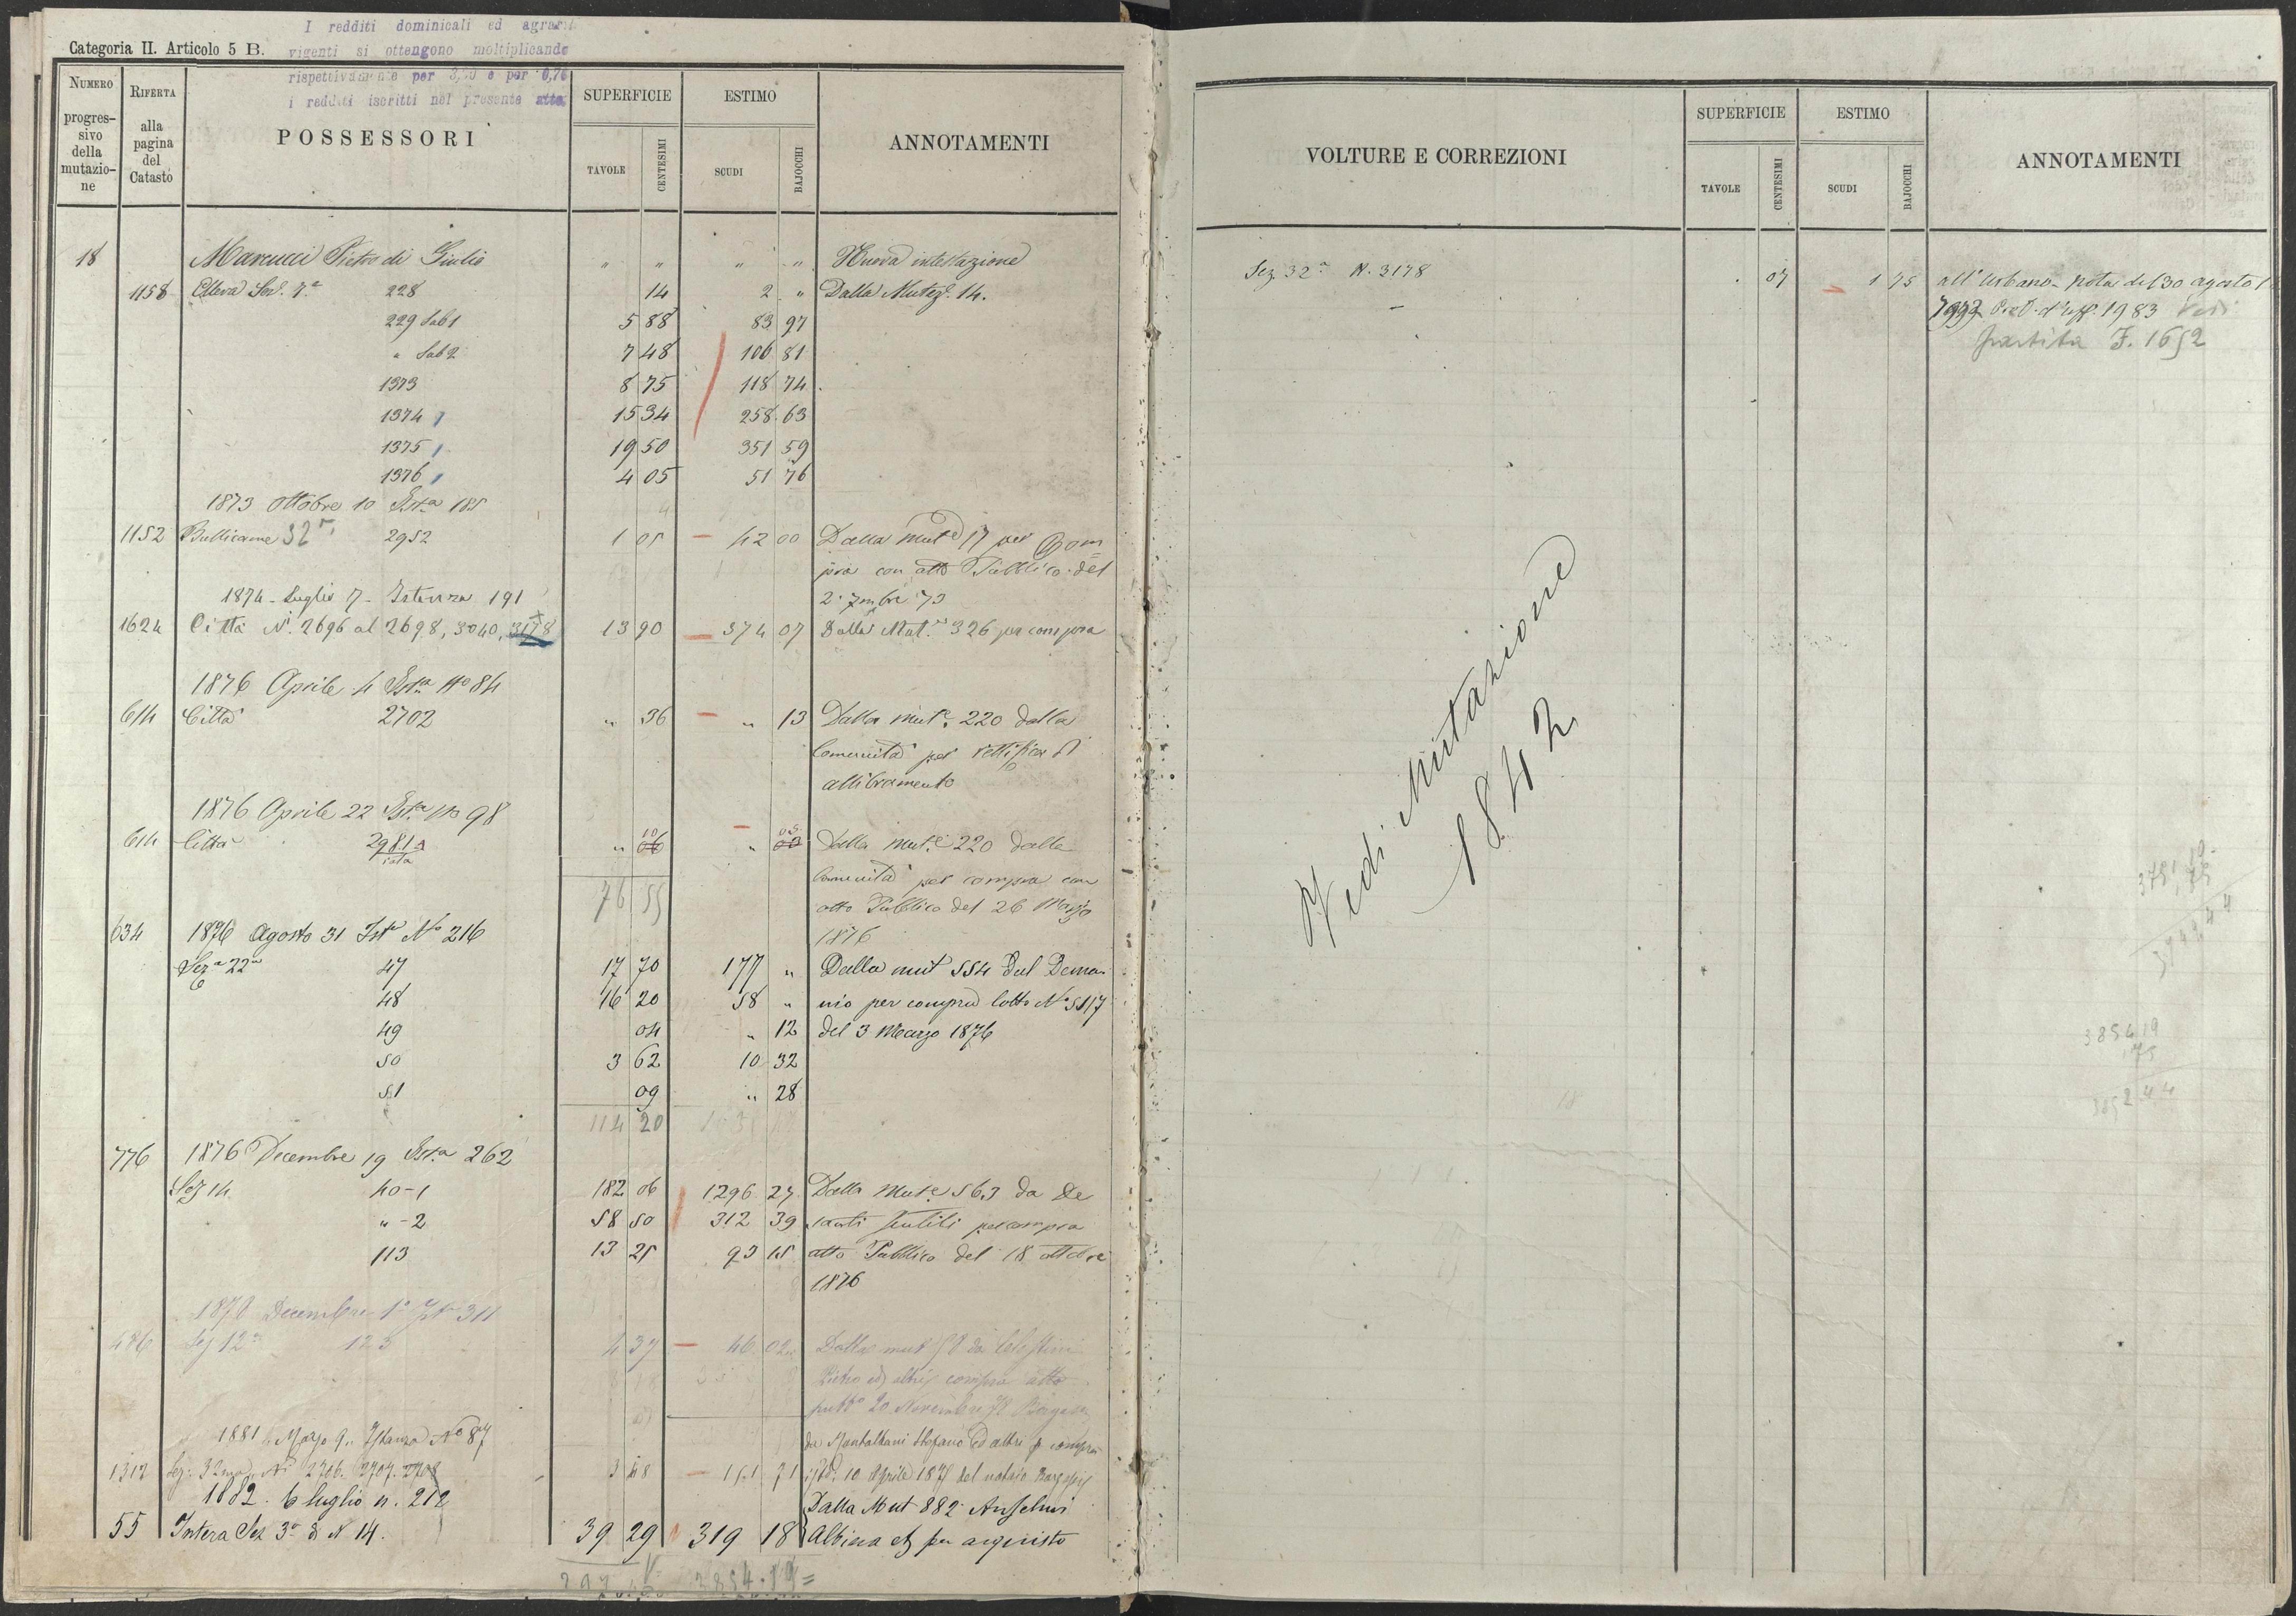 Categoria II. Articolo 5 B.
I redditi dominicali ed agrari
vigenti si ottengono moltiplicando
rispettivamente per e per 0,76
i redditi iscritti nel presente atto.
NUMERO progressivo della mutazione
RIFERTA alla pagina del Catasto
POSSESSORI
SUPERFICIE
TAVOLE CENTESIMI
ESTIMO
SCUDI BAJOCCHI
ANNOTAMENTI
18 Marcucci Pietro di Giulio " " " " Nuova intestazione
1158 228 14 2 " Dalla Mutaz. 14.
229 Sub 1 5 88 83 97
" Sub 2 7 48 106 81
1373 8 75 118 74
1374 15 34 258 63
1375 19 50 351 59
1376 4 05 51 76
1873 Ottobre 10 Ista 185
1152 Bullicame 32a 2952 1 05 42 00 Dalla mute 17 per Com
pra con atto Pubblico del
2 7mbre 73
1874 - Luglio 7 - Istanza 191
1624 Città Ni. 2696 al 2698, 3040, 3178 13 90 374 07 Dalla Mut. 326 per compra
1876 Aprile 4 Ista No 84
614 Città 2702 " 36 " 13 Dalla mute. 220 dalla
Comunità per rettifica di
allibramento
1876 Aprile 22 Ista No 98
614 Città 2981 rata " 10 06 " Dalla mute 220 dalla
Comunità per compra con
76 55 atto Pubblico del 26 Marzo
1876
634 1876 Agosto 31 Ista No 216
Seza 22a 47 17 70 177 " Dalla mut 554 Dal Dema
48 16 20 58 " nio per compra lotto No 5117
49 04 " 12 del 3 Marzo 1876
50 3 62 10 32
51 09 " 28
114 20
776 1876 Decembre 19 Ista 262
Sez 14 40-1 182 06 1296 27 Dalla mute 563 da De
" -2 58 50 312 39 Gentili per compra
113 13 25 93 15 atto Pubblico del 18 ottobre
1876
1878 Decembre 1° Ista 311
476 Sez 12a 123 4 37 46 02 Dalla mut 58 da Celestini
Pietro ed altri compra atto
pubbo 20 Novembre 78
1881 Maggio 9. Istanza No 87 da Stefano ed altri p compra
1312 Sez. 32ma Ni 2706. 2707. 2708 3 48 151 71 10 Aprile 187 del notaio
1882. 6 luglio n. 212 Dalla Mut 882 Anselmi
55 Intera Sez 3a N 14. 39 29 319 18 Albina per acquisto
3854.19=
VOLTURE E CORREZIONI
SUPERFICIE
TAVOLE CENTESIMI
ESTIMO
SCUDI BAJOCCHI
ANNOTAMENTI
Sez 32a N. 3178 . 07 1 75 all'Urbano - Nota del 30 agosto
1983 Vedi
partita F. 1652
Vedi Mutazione
1842
3854 19
1 75
3852 44